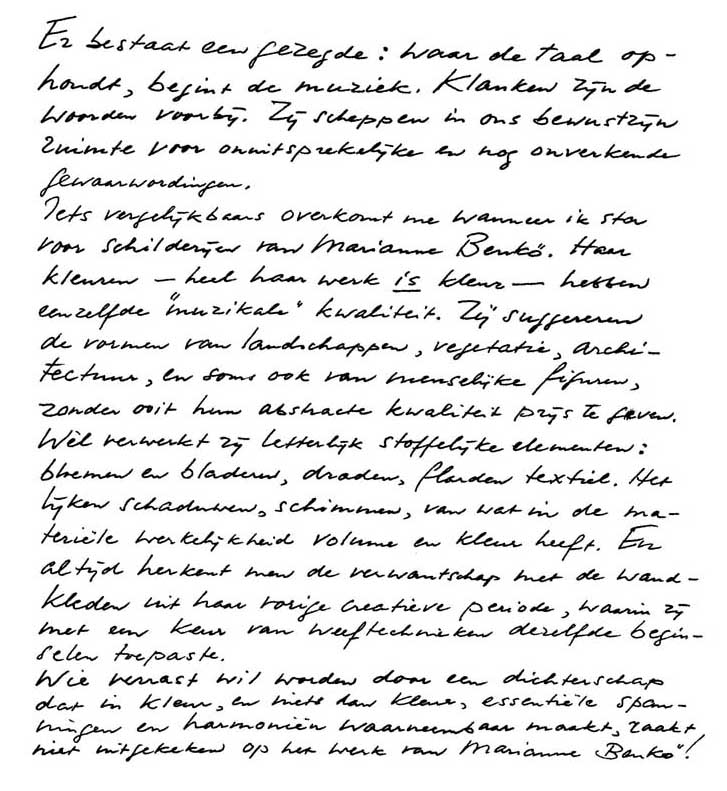 Er bestaat een gezegde: waar de taal op-
houdt, begint de muziek. Klanken zijn de
woorden voorbij. Zij scheppen in ons bewustzijn
ruimte voor onuitsprekelijke en nog onverkende
gewaarwordingen.
Iets vergelijkbaars overkomt me wanneer ik sta
voor schilderijen van Marianne Benkö. Haar
kleuren – heel haar werk is kleur – hebben
eenzelfde "muzikale" kwaliteit. Zij suggereren
de vormen van landschappen, vegetatie, archi-
tectuur, en soms ook van menselijke figuren,
zonder ooit hun abstracte kwaliteit prijs te geven.
Wèl verwerkt zij letterlijk stoffelijke elementen:
bloemen en bladeren, draden, flarden textiel. Het
lijken schaduwen, schimmen, van wat in de ma-
teriële werkelijkheid volume en kleur heeft. En
altijd herkent men de verwantschap met de wand-
kleden uit haar vorige creatieve periode, waarin zij
met een keur van weeftechnieken dezelfde begin-
selen toepaste.
Wie verrast wil worden door een dichterschap
dat in kleur, en niets dan kleur, essentiële span-
ningen en harmoniën waarneembaar maakt, raakt
niet uitgekeken op het werk van Marianne Benkö!